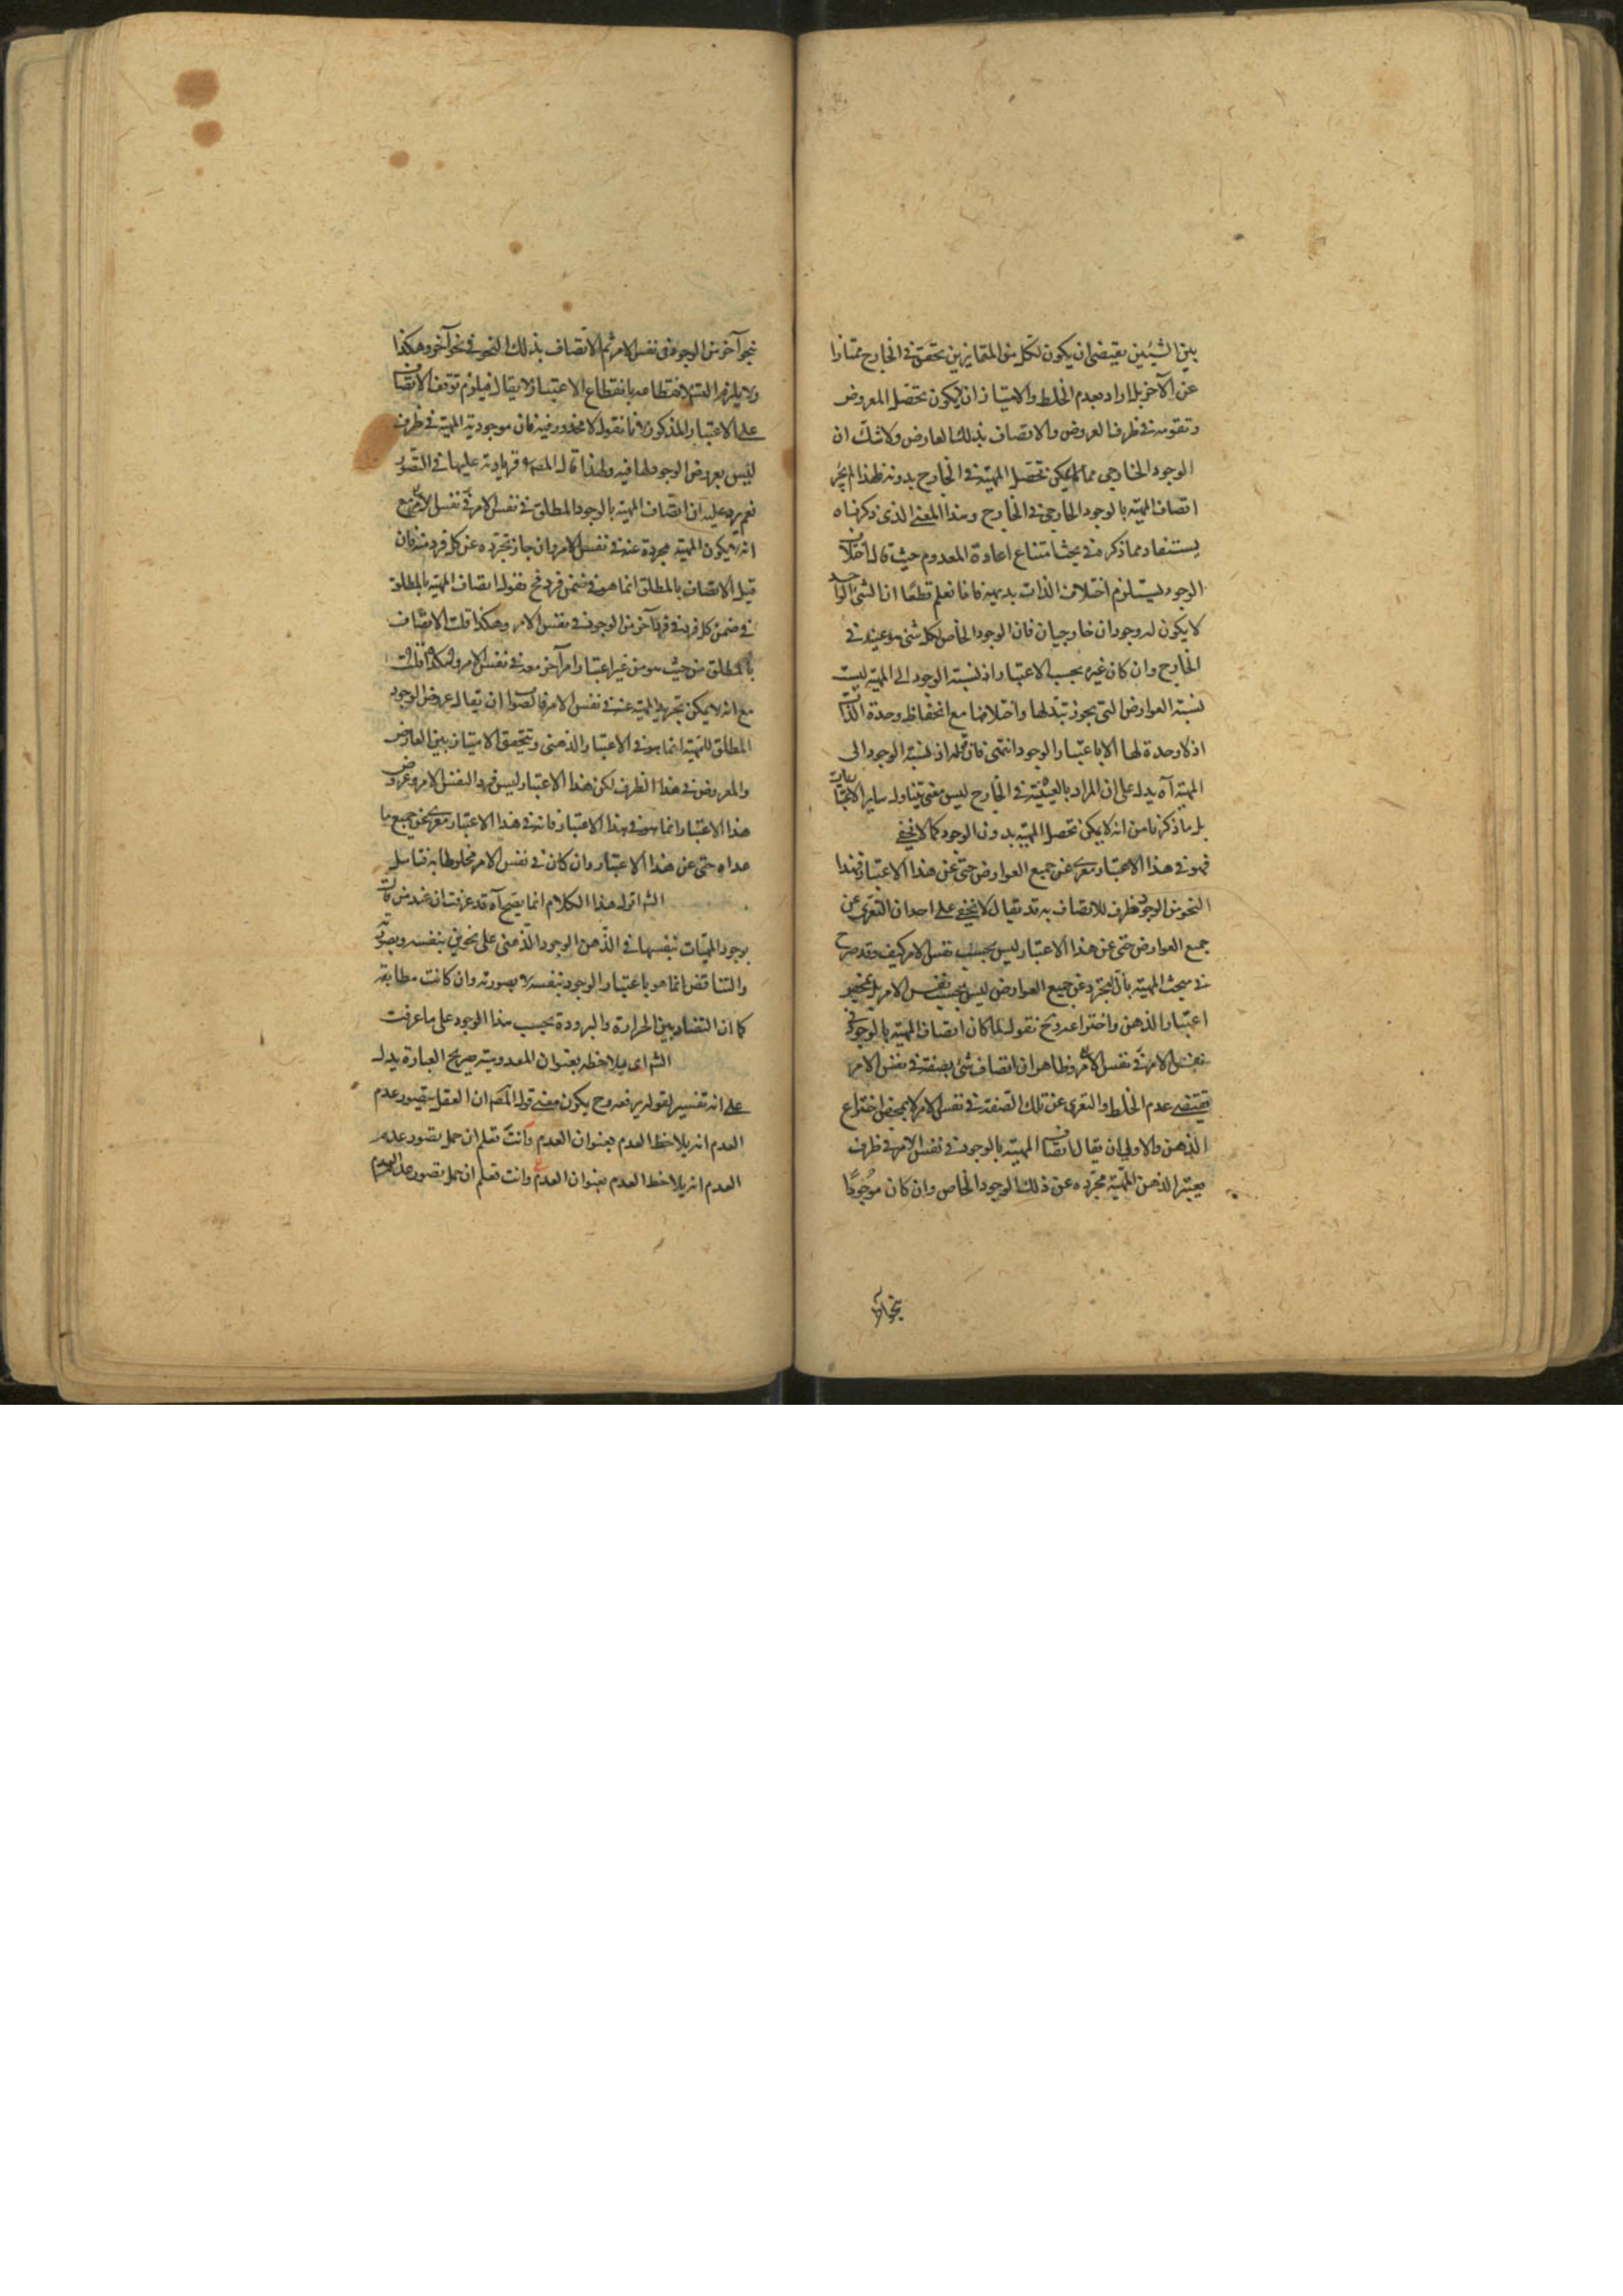 بين الشيئين يقتضى ان يكون لكل من المتمايزين تحقق فى الخارج ممتازا
عن الآخر بل اراد بعدم الخلط والامتياز ان لا يكون تحصل المعروض
وتقومه فى ظرف العروض والاتصاف بذلك العارض ولا شك ان
الوجود الخارجى مما لا يمكن تحصل المهية فى الخارج بدونه فلهذا لم يجز
اتصاف المهية بالوجود الخارجى فى الخارج وهذا المعنى الذى ذكرناه
يستفاد مما ذكره فى بحث امتناع اعادة المعدوم حيث قال اختلاف
الوجود يستلزم اختلاف الذات بديهية فانا نعلم قطعا ان الشئ الواحد
لا يكون له وجودان خارجيان فان الوجود الخاص لكل شئ هو عينه فى
الخارج وان كان غيره بحسب الاعتبار اذ نسبة الوجود الى المهية ليست
نسبة العوارض التى يجوز تبدلها واختلافها مع انحفاظ وحدة الذات
اذ لا وحدة لها الا باعتبار الوجود انتهى فان قوله اذ نسبة الوجود الى
المهية آه يدل على ان المراد بالعينية فى الخارج ليس معنى يتناول ساير الاعتباريات
بل ما ذكرنا من انه لا يمكن تحصل المهية بدون الوجود كما لا يخفى
فهو فى هذا الاعتبار معرى عن جميع العوارض حتى عن هذا الاعتبار فهذا
النحو من الوجود ظرف للاتصاف به قد يقال لا يخفى على احد ان التعرى عن
جميع العوارض حتى عن هذا الاعتبار ليس بحسب نفس الامر كيف وقد صرح
فى مبحث المهية بان التجرد عن جميع العوارض ليس بحسب نفس الامر بل بمحض
اعتبار الذهن واختراعه وح نقول لما كان اتصاف المهية بالوجود فى
نفس الامر فى نفس الامر وظاهر ان اتصاف شئ بصفة فى نفس الامر
يقتضى عدم الخلط والتعرى عن تلك الصفة فى نفس الامر لا بمحض اختراع
الذهن والاولى ان يقال اتصاف المهية بالوجود فى نفس الامر فى ظرف
يعتبر الذهن المهية مجرده عن ذلك الوجود الخاص وان كان موجودا
بنحو آخر
بنحو آخر من الوجود فى نفس الامر ثم الاتصاف بذلك النحو فى نحو آخر وهكذا
ولا يلزم التسلسل لانقطاعه بانقطاع الاعتبار لا يقال فيلزم توقف الاتصاف
على الاعتبار المذكور لانا نقول لا محذور فيه فان موجودية المهية فى ظرف
ليس بعروض الوجود لها فيه ولهذا قال المصـ فزيادته عليها فى التصور
نعم يرد عليه ان اتصاف المهية بالوجود المطلق فى نفس الامر فى نفس الامر مع
انه لا يكون المهية مجردة عنه فى نفس الامر وان جاز تجرده عن كل فرد منه فان
قيل الاتصاف بالمطلق انما هو فى ضمن فرد فح نقول اتصاف المهية بالمطلق
فى ضمن كل فرد فى فرد آخر من الوجود فى نفس الامر وهكذا قلت الاتصاف
بالمطلق من حيث هو من غير اعتبار امر آخر معه فى نفس الامر
مع انه لا يمكن تجريد المهية عنه فى نفس الامر فالصواب ان يقال عروض الوجود
المطلق للمهية انما هو فى الاعتبار الذهنى ويتحقق الامتياز بين العارض
والمعروض فى هذا الظرف لكن هذا الاعتبار ليس فردا لنفس الامر وعروض
هذا الاعتبار انما هو فى هذا الاعتبار فانه فى هذا الاعتبار معرى عن جميع ما
عداه حتى عن هذا الاعتبار وان كان فى نفس الامر مخلوطا به فتأمل
الش اقول هذا الكلام انما يصح آه قد عرفت ان عند من قال
بوجود المهيات بنفسها فى الذهن الوجود الذهنى على نحوين بنفسه وبصورته
والتناقض انما هو باعتبار الوجود بنفسه لا بصورته وان كانت مطابقة
كما ان التضاد بين الحرارة والبرودة بحسب هذا الوجود على ما عرفت
الش اى يلاحظه بعنوان المعدومية صريح العبارة يدل
على انه تفسير لقوله يرفعه وح يكون معنى قول المصـ ان العقل يتصور عدم
العدم انه يلاحظ العدم بعنوان العدم وانت تعلم ان حمل تصور عدم
العدم انه يلاحظ العدم بعنوان العدم وانت تعلم ان حمل تصور عدم العدم